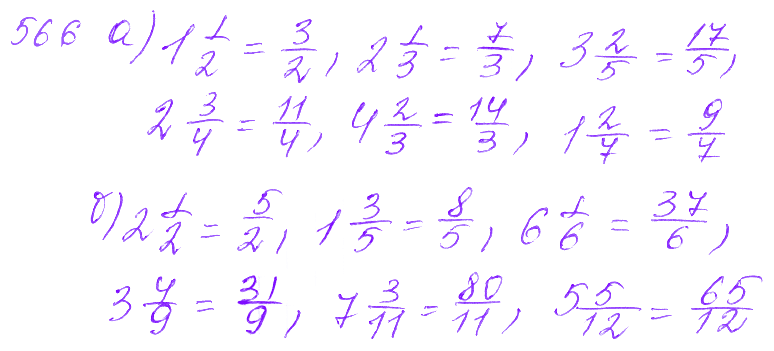 566 а) 1 1/2 = 3/2, 2 1/3 = 7/3, 3 2/5 = 17/5,
2 3/4 = 11/4, 4 2/3 = 14/3, 1 2/7 = 9/7
б) 2 1/2 = 5/2, 1 3/5 = 8/5, 6 1/6 = 37/6,
3 4/9 = 31/9, 7 3/11 = 80/11, 5 5/12 = 65/12